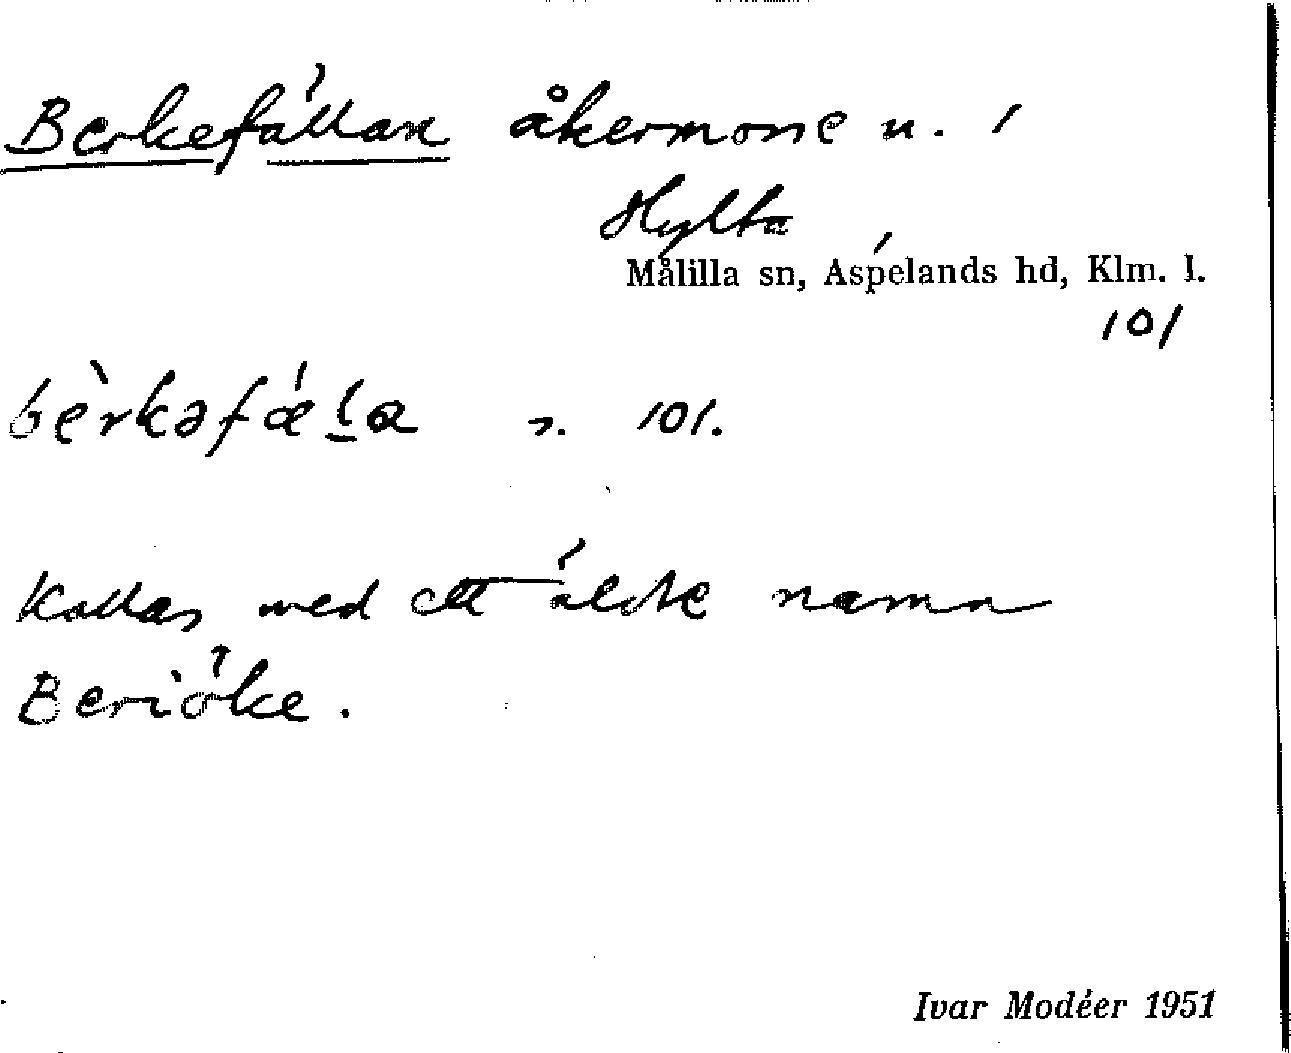 Berkefällan åkermosse u.
Hylta
Målilla sn, Aspelands hd, Klm. l.
101
bèrkəfǽḷa s. 101.
Kallas med ett äldre namn
Beriöke.
Ivar Modéer 1951